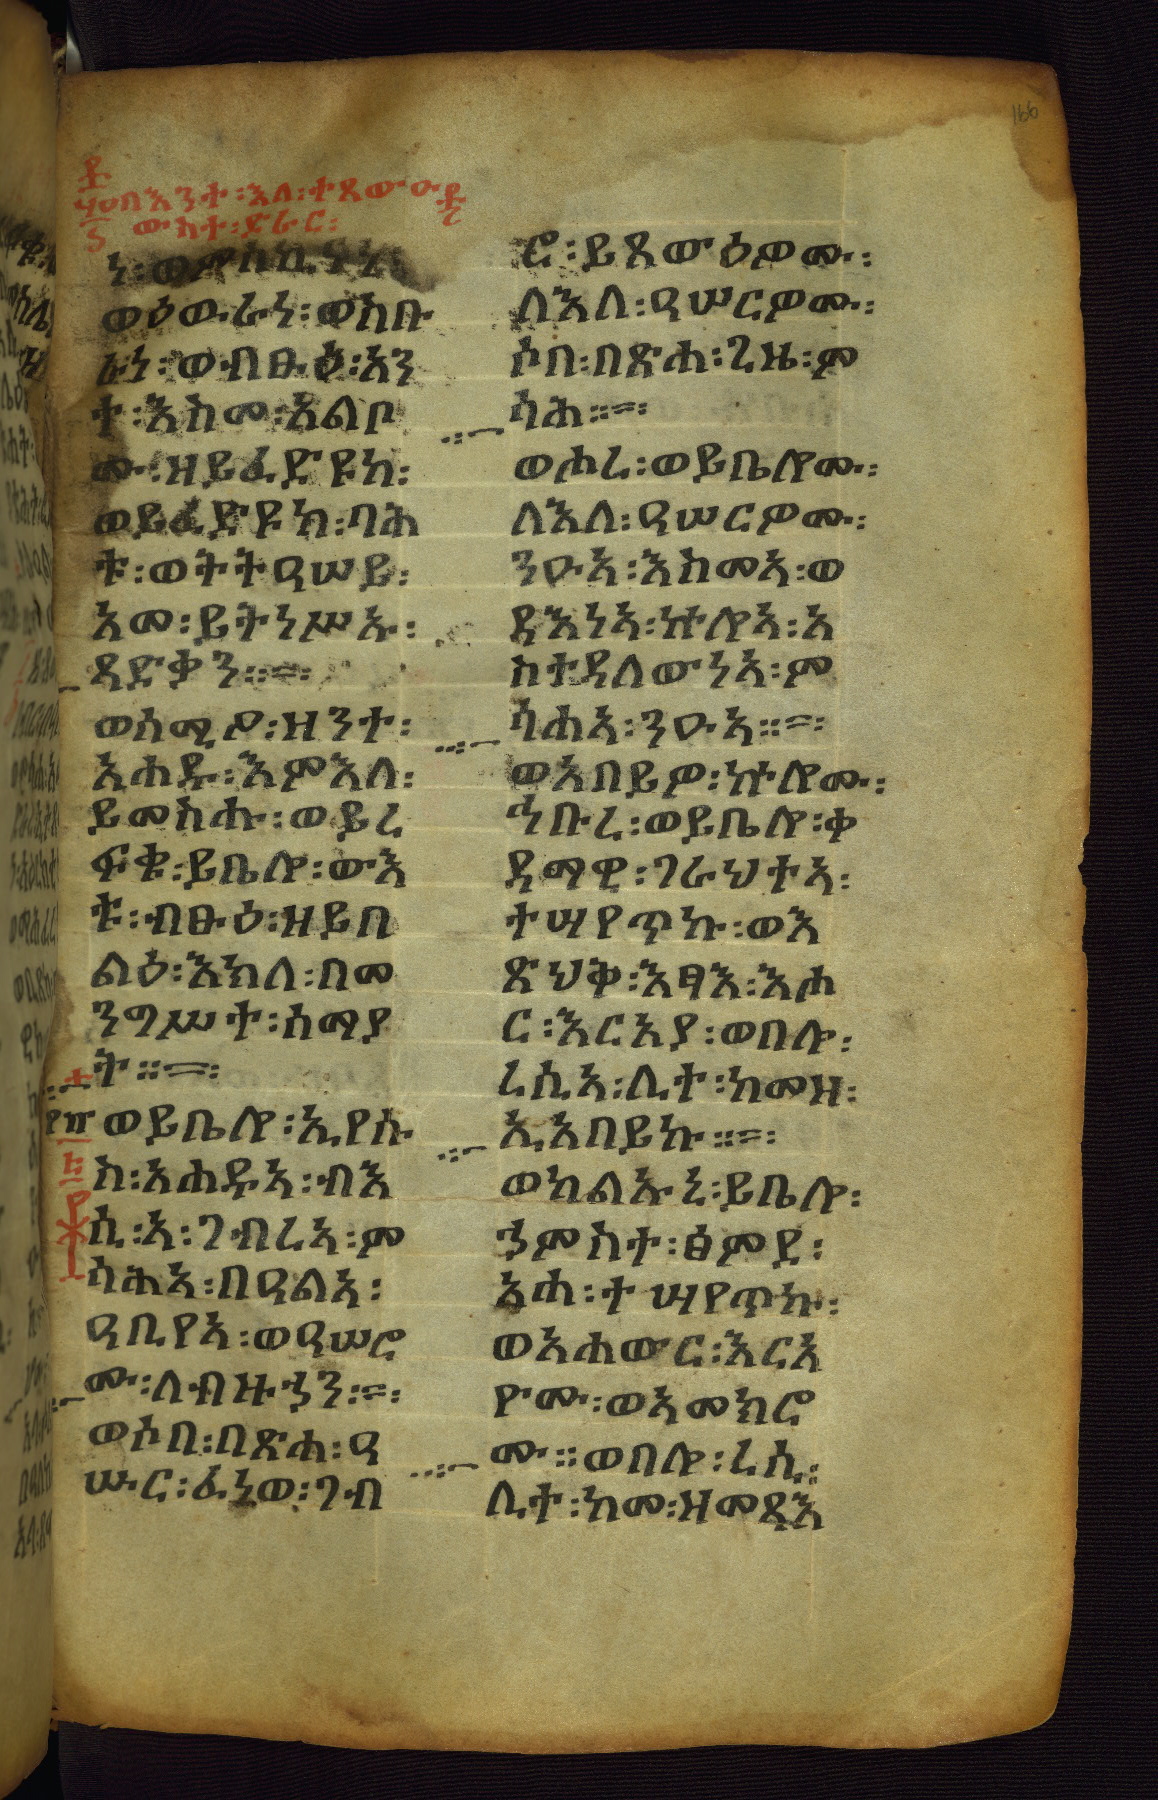 166
በእንተ፡እለ፡ተጸውዑ
ውስተ፡ድራር፡
ነ፡ወምስኪናነ፡
ወዕውራነ፡ወስቡ
ራነ፡ወብፁዕ፡አን
ተ፡እስመ፡አልቦ
ሙ፡ዘይፈድዩከ፡
ወይፈድዩከ፡ባሕ
ቱ፡ወትትዓሠይ፡
አመ፡ይትነሥኡ፡
ጻድቃን።=፡
ወሰሚዖ፡ዘንተ፡
አሐዱ፡እምእለ፡
ይመስሑ፡ወይረ
ፍቁ፡ይቤሎ፡ውእ
ቱ፡ብፁዕ፡ዘይበ
ልዕ፡እክለ፡በመ
ንግሥተ፡ሰማያ
ት።=፡
ወይቤሎ፡ኢየሱ
ስ፡አሐዱኣ፡ብእ
ሲ፡ኣ፡ገብረኣ፡ም
ሳሕኣ፡በዓልኣ፡
ዓቢየኣ፡ወዓሠሮ
ሙ፡ለብዙኃን፡=፡
ወሶበ፡በጽሐ፡ዓ
ሡር፡ፈነወ፡ገብ
ሮ፡ይጸውዕዎሙ፡
ለእለ፡ዓሠርዎሙ፡
ሶበ፡በጽሐ፡ጊዜ፡ም
ሳሕ።=፡
ወሖረ፡ወይቤሎሙ፡
ለእለ፡ዓሠርዎሙ፡
ንዑኣ፡እስመኣ፡ወ
ዳእነኣ፡ኵሎኣ፡አ
ስተዳለውነኣ፡ም
ሳሐኣ፡ንዑኣ።=፡
ወአበይዎ፡ኵሎሙ፡
ኅቡረ፡ወይቤሎ፡ቀ
ዳማዊ፡ገራህተኣ፡
ተሣየጥኩ፡ወእ
ጽህቅ፡እፃእ፡እሖ
ር፡እርአያ፡ወበሎ፡
ረሲኣ፡ሊተ፡ከመዘ፡
ኢአበይኩ።=፡
ወካልኡኒ፡ይቤሎ፡
ኀምስተ፡ፅምደ፡
አሐ፡ተሣየጥኩ፡
ወአሐውር፡እርአ
ዮሙ፡ወኣመክሮ
ሙ።ወበሎ፡ረሲ፡
ሊተ፡ከመ፡ዘመጻእ